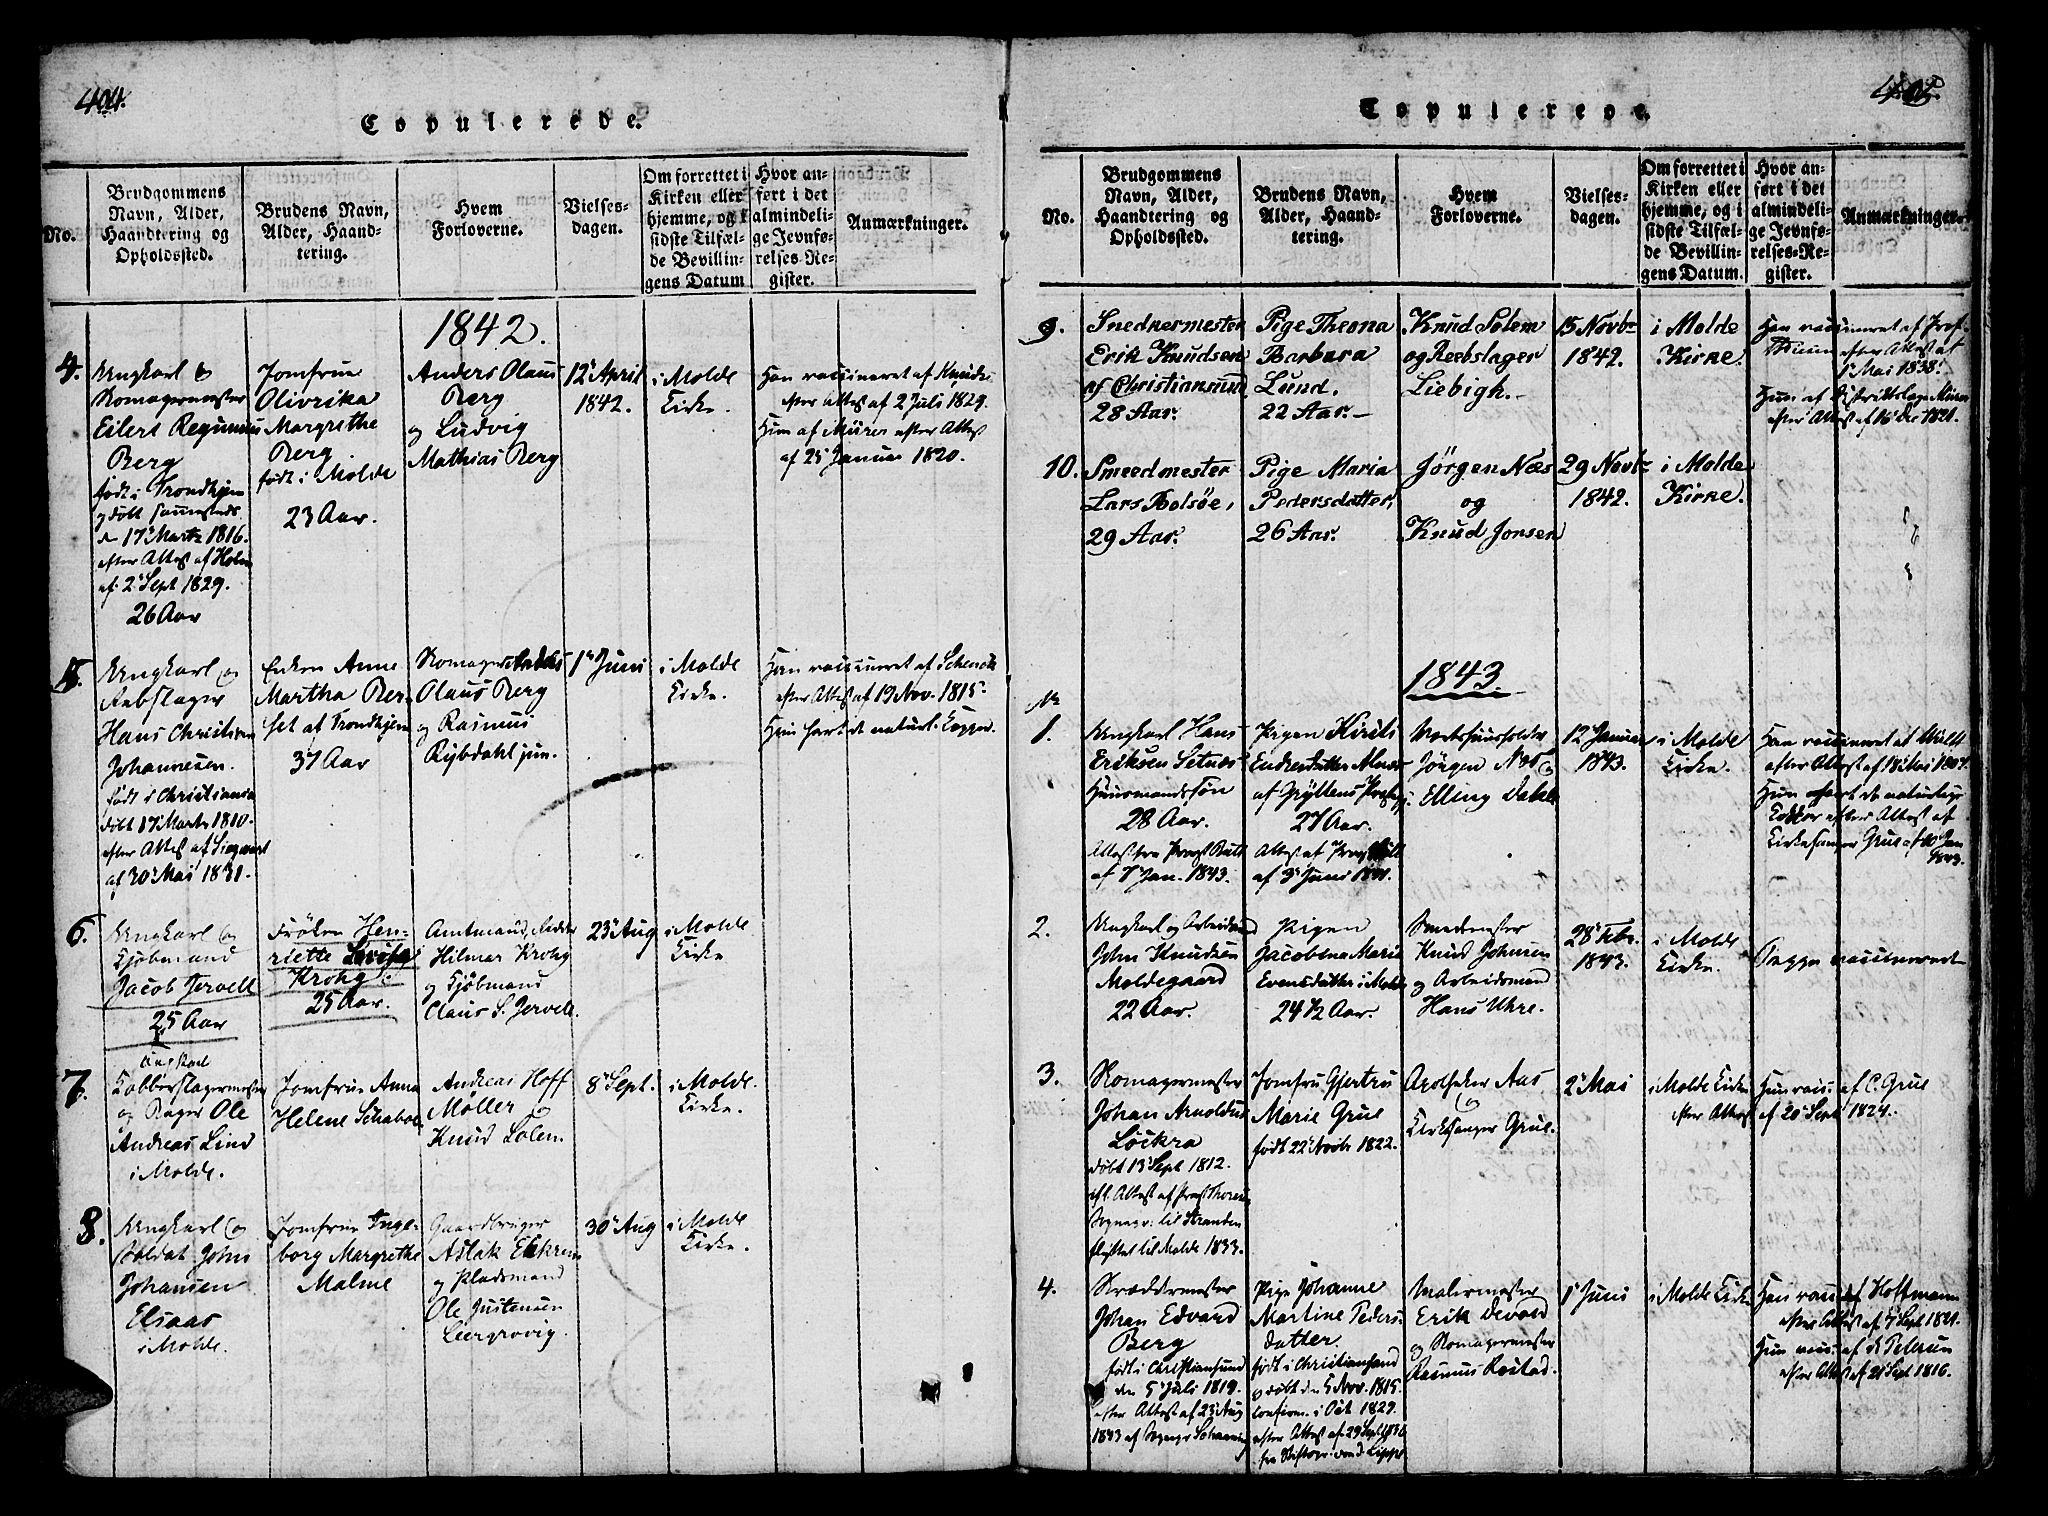 404.
Copulerede.
No.
Brudgommens
Navn, Alder,
Haandtering og
Opholdssted.
Brudens Navn,
Alder, Haand-
tering.
Hvem
Forloverne.
Vielses-
dagen.
Om forrettet i
Kirken eller
hjemme, og i
sidste Tilfæl-
de Bevillin-
gens Datum
Hvor an-
ført i det
almindeli-
ge Jevnfø-
relses-Re-
gister.
Anmærkninger.
1842.
4.
Ungkarl &
Eilert
Berg
født i Trondhjem
og døbt
d 17 Martz 1816.
efter Attest af Holm
af 2 Sept 1829.
26 Aar
Jomfrue
Olivrika
Margrethe
Berg.
født i Molde
23 Aar.
Anders Olaus
Berg
og Ludvig
Mathias Berg
12 April
1842.
i Molde
Kirke.
Han vaccineret af
efter Attest af 2 Juli 1829.
Hun af efter Attest
af 25 Januar 1820.
5.
Ungkarl og
Rebslager
Hans Christian
Johannesen.
født i Christiania
døbt 17 Martz 1810.
efter Attest af
af 30 Mai 1831.
Enken Anne
Martha Ber-
set af Trondhjem
37 Aar
Olaus Berg
og Rasmus
Rybdahl jun.
1 Juni
i Molde
Kirke.
Han vaccineret af Schenck
efter Attest af 19 Nov. 1815.
Hun havt de naturl. Kopper.
6.
Ungkarl og
Kjøbmand
Jacob Jervell
25 Aar
Frøken Hen-
riette
Krohg.
25 Aar.
Amtmand, Ridder
Hilmar Krohg
og Kjøbmand
Claus S. Jervell.
23 Aug
i Molde
Kirke
7.
Ungkarl
Kobberslagermester
og Ole
Andreas Lind
i Molde.
Jomfrue Anna
Helene
Andreas Hoff
Møller
og
Knud Solem.
8 Sept.
i Molde.
Kirke.
8.
Ungkarl og
Soldat John
Johansen
Elsaas
i Molde.
Jomfrue Inge-
borg Margrethe
Malme
Gaardbruger
Aslak
og Pladsmand
Ole Justensen
30 Aug
i Molde
Kirke.
405.
Copulerede.
No.
Brudgommens
Navn, Alder,
Haandtering og
Opholdssted.
Brudens Navn,
Alder, Haand-
tering.
Hvem
Forloverne.
Vielses-
dagen.
Om forrettet i
Kirken eller
hjemme, og i
sidste Tilfæl-
de Bevillin-
gens Datum.
Hvor an-
ført i det
almindeli-
ge Jevnfø-
relses-Re-
gister.
Anmærkninger.
9.
Snedkermester
Erik Knudsen
af Christiansund
28 Aar.
Pige Theona
Barbara
Lund.
22 Aar.
Knud Solem
og Reebslager
Liebigh.
15 Novbr
1842.
i Molde
Kirke.
Han vaccineret af
efter Attest af
1 Mai 1838.
Hun af
efter Attest af 16 Dec 1821.
10.
Smeedmester
Lars Bolsøe,
29 Aar.
Pige Maria
Pedersdatter,
26 Aar.
Jørgen Næs
og
Knud Jonsen
29 Novbr
1842.
i Molde
Kirke.
1843.
No
1.
Ungkarl Hans
Eriksen
Huusmandssøn
28 Aar.
Attest fra
af 7 Jan. 1843.
Pigen
Endresdatter
af Gryttens
27 Aar.
Attest af
af 3 Juni
Jørgen Næs og
Elling
12 Januar
1843.
i Molde
Kirke.
Han vaccineret af
efter Attest af
Hun havt de naturlige
Kopper efter Attest af
Kirkesanger Grue af 10 Jan
1843.
2.
Ungkarl og Arbeidsmand
John Knudsen
Moldegaard
22 Aar.
Pigen
Jacobine Marie
Evensdatter i Molde
24 1/2 Aar.
Smedmester
Knud Johnsen
og Arbeidsmand
Hans Uhre.
28 Febr.
1843.
i Molde
Kirke.
Begge vaccinerede
3.
Johan Arnoldus
døbt 13 Sept 1812.
eft. Attest af
Sognepr: til Stranden
flyttet til Molde 1833.
Jomfru Gjertru
Marie Grue
født 22 Novbr 1822.
Apotheker Aas
og
Kirkesanger Grue.
2 Mai
i Molde Kirke
efter Attest
Hun vacc: af C. Grue
af 20 Sept 1824.
4.
Skræddermester
Johan Edvard
Berg
født i Christiansund
den 5 Juli 1819.
efter Attest af 23 Aug
1843 af Sognepr
Pige Johanne
Martine Peders-
datter.
født i Christiansand
og døbt den 5 Nov. 1815.
confirm. i Oct 1829.
efter Attest af 29 Sept
Malermester
Erik Devold
og
Rasmus
1 Juni
i Molde Kirke
Han vacc: af Hoffmann
efter Attest af 7 Sept 1821.
Hun vacc: af Petersen
efter Attest af 21 Sept 1816.